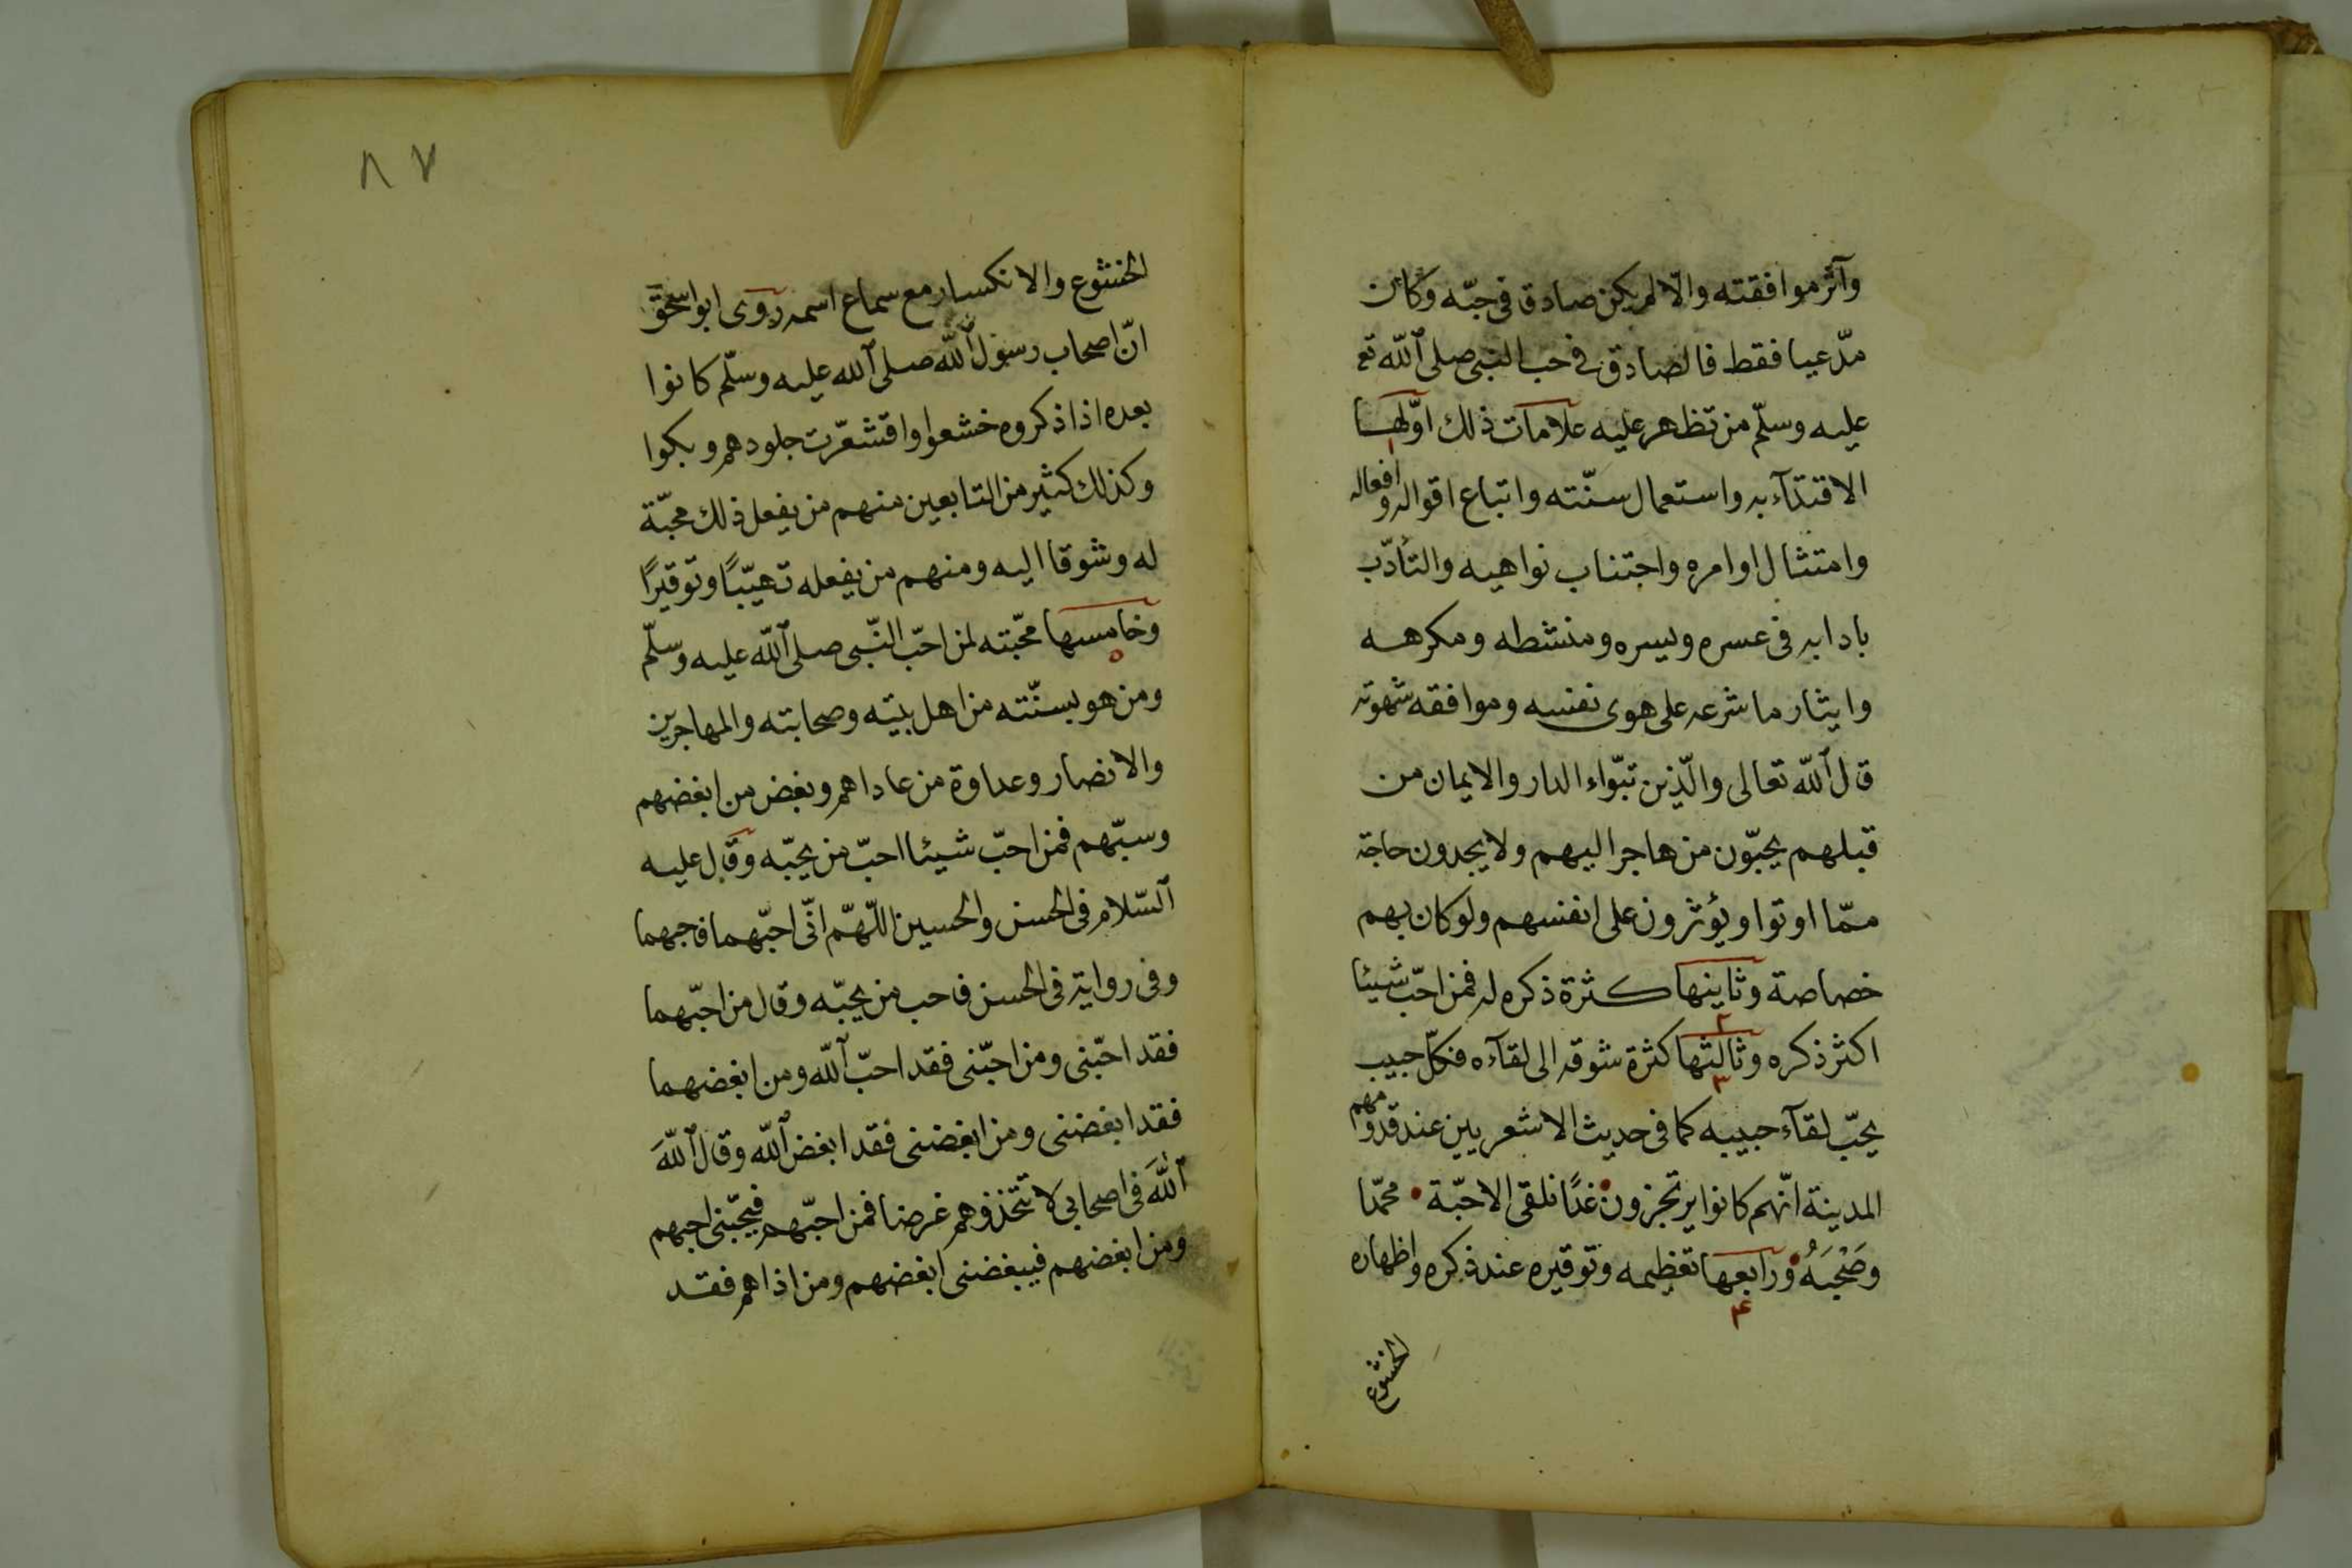 وآثر موافقته والّا لم يكن صادق فى حبّه وكان
مدّعيا فقط فالصادق فى حب النبى صلى الله تع
عليه وسلّم من تظهر عليه علامات ذلك اوّلها
١
الاقتدآء به واستعمال سنّته واتباع اقواله وافعاله
وامتثال اوامره واجتناب نواهيه والتأدّب
بادابه فى عسره ويسره ومنشطه ومكرهه
وايثار ما شرعه على هوى نفسه وموافقه شهوته
قال الله تعالى والّذين تبّواء الدار والايمان من
قبلهم يحبّون من هاجر اليهم ولا يجدون حاجة
ممّا اوتوا ويؤثرون على انفسهم ولو كان بهم
خصاصة وثاينها كثرة ذكره له فمن احبّ شيئا
٢
اكثر ذكره وثالثها كثرة شوقه الى لقآءه فكلّ حبيب
٣
يحبّ لقآء حبيبه كما فى حديث الاشعريين عند قدومهم
المدينة انّهم كانوا يرتجزون غدًا نلقى الاحبّة محمّدا
وصَحْبَهُ ورابعها تعظيمه وتوقيره عند ذكره واظهاره
٤
الخشوع
٨٧
الخشوع والانكسار مع سماع اسمه روى ابو اسحق
انّ اصحاب رسول الله صلى الله عليه وسلّم كانوا
بعده اذا ذكروه خشعوا واقشعّرت جلودهم وبكوا
وكذلك كثير من التابعين منهم من يفعل ذلك محبّة
له وشوقا اليه ومنهم من يفعله تهيّبًا وتوقيرًا
وخامسها محبّته لمن احبّ النّبى صلى الله عليه وسلّم
٥
ومن هو بسنّته من اهل بيته وصحابته والمهاجرين
والانصار وعداوة من عاداهم وبغض من ابغضهم
وسبّهم فمن احبّ شيئا احبّ من يحبّه وقال عليه
السّلام فى الحسن والحسين اللّهمّ انّى احبّهما فاحبهما
وفى رواية فى الحسن فاحب من يحبّه وقال من احبّهما
فقد احبّنى ومن احبّنى فقد احبّ الله ومن ابغضهما
فقد ابغضنى ومن ابغضنى فقد ابغض الله وقال اللهَ
اللهَ فى اصحابى لا تتّخذوهم غرضا فمن احبّهم فبحبّنى احبهم
ومن ابغضهم فببغضنى ابغضهم ومن اذاهم فقد